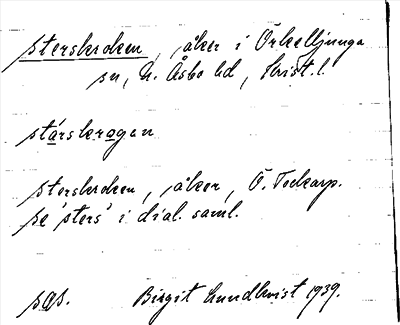 sterskroken, åker i Örkelljunga
sn, N. Åsbo hd, Krist. l.
stárskrogan
sterskroken, åker, Ö. Tockarp.
se 'sters' i dial. saml.
Birgit Lundkvist 1939.